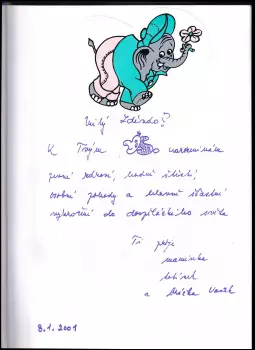 Milý Zdendo!
K Tvým 25. narozeninám
pevné zdraví, hodně štěstí,
osobní pohody a hlavně šťastné
vykročení do dospěláckého světa
Ti přeje
maminka
tatínek
a Vašek
8.1.2001